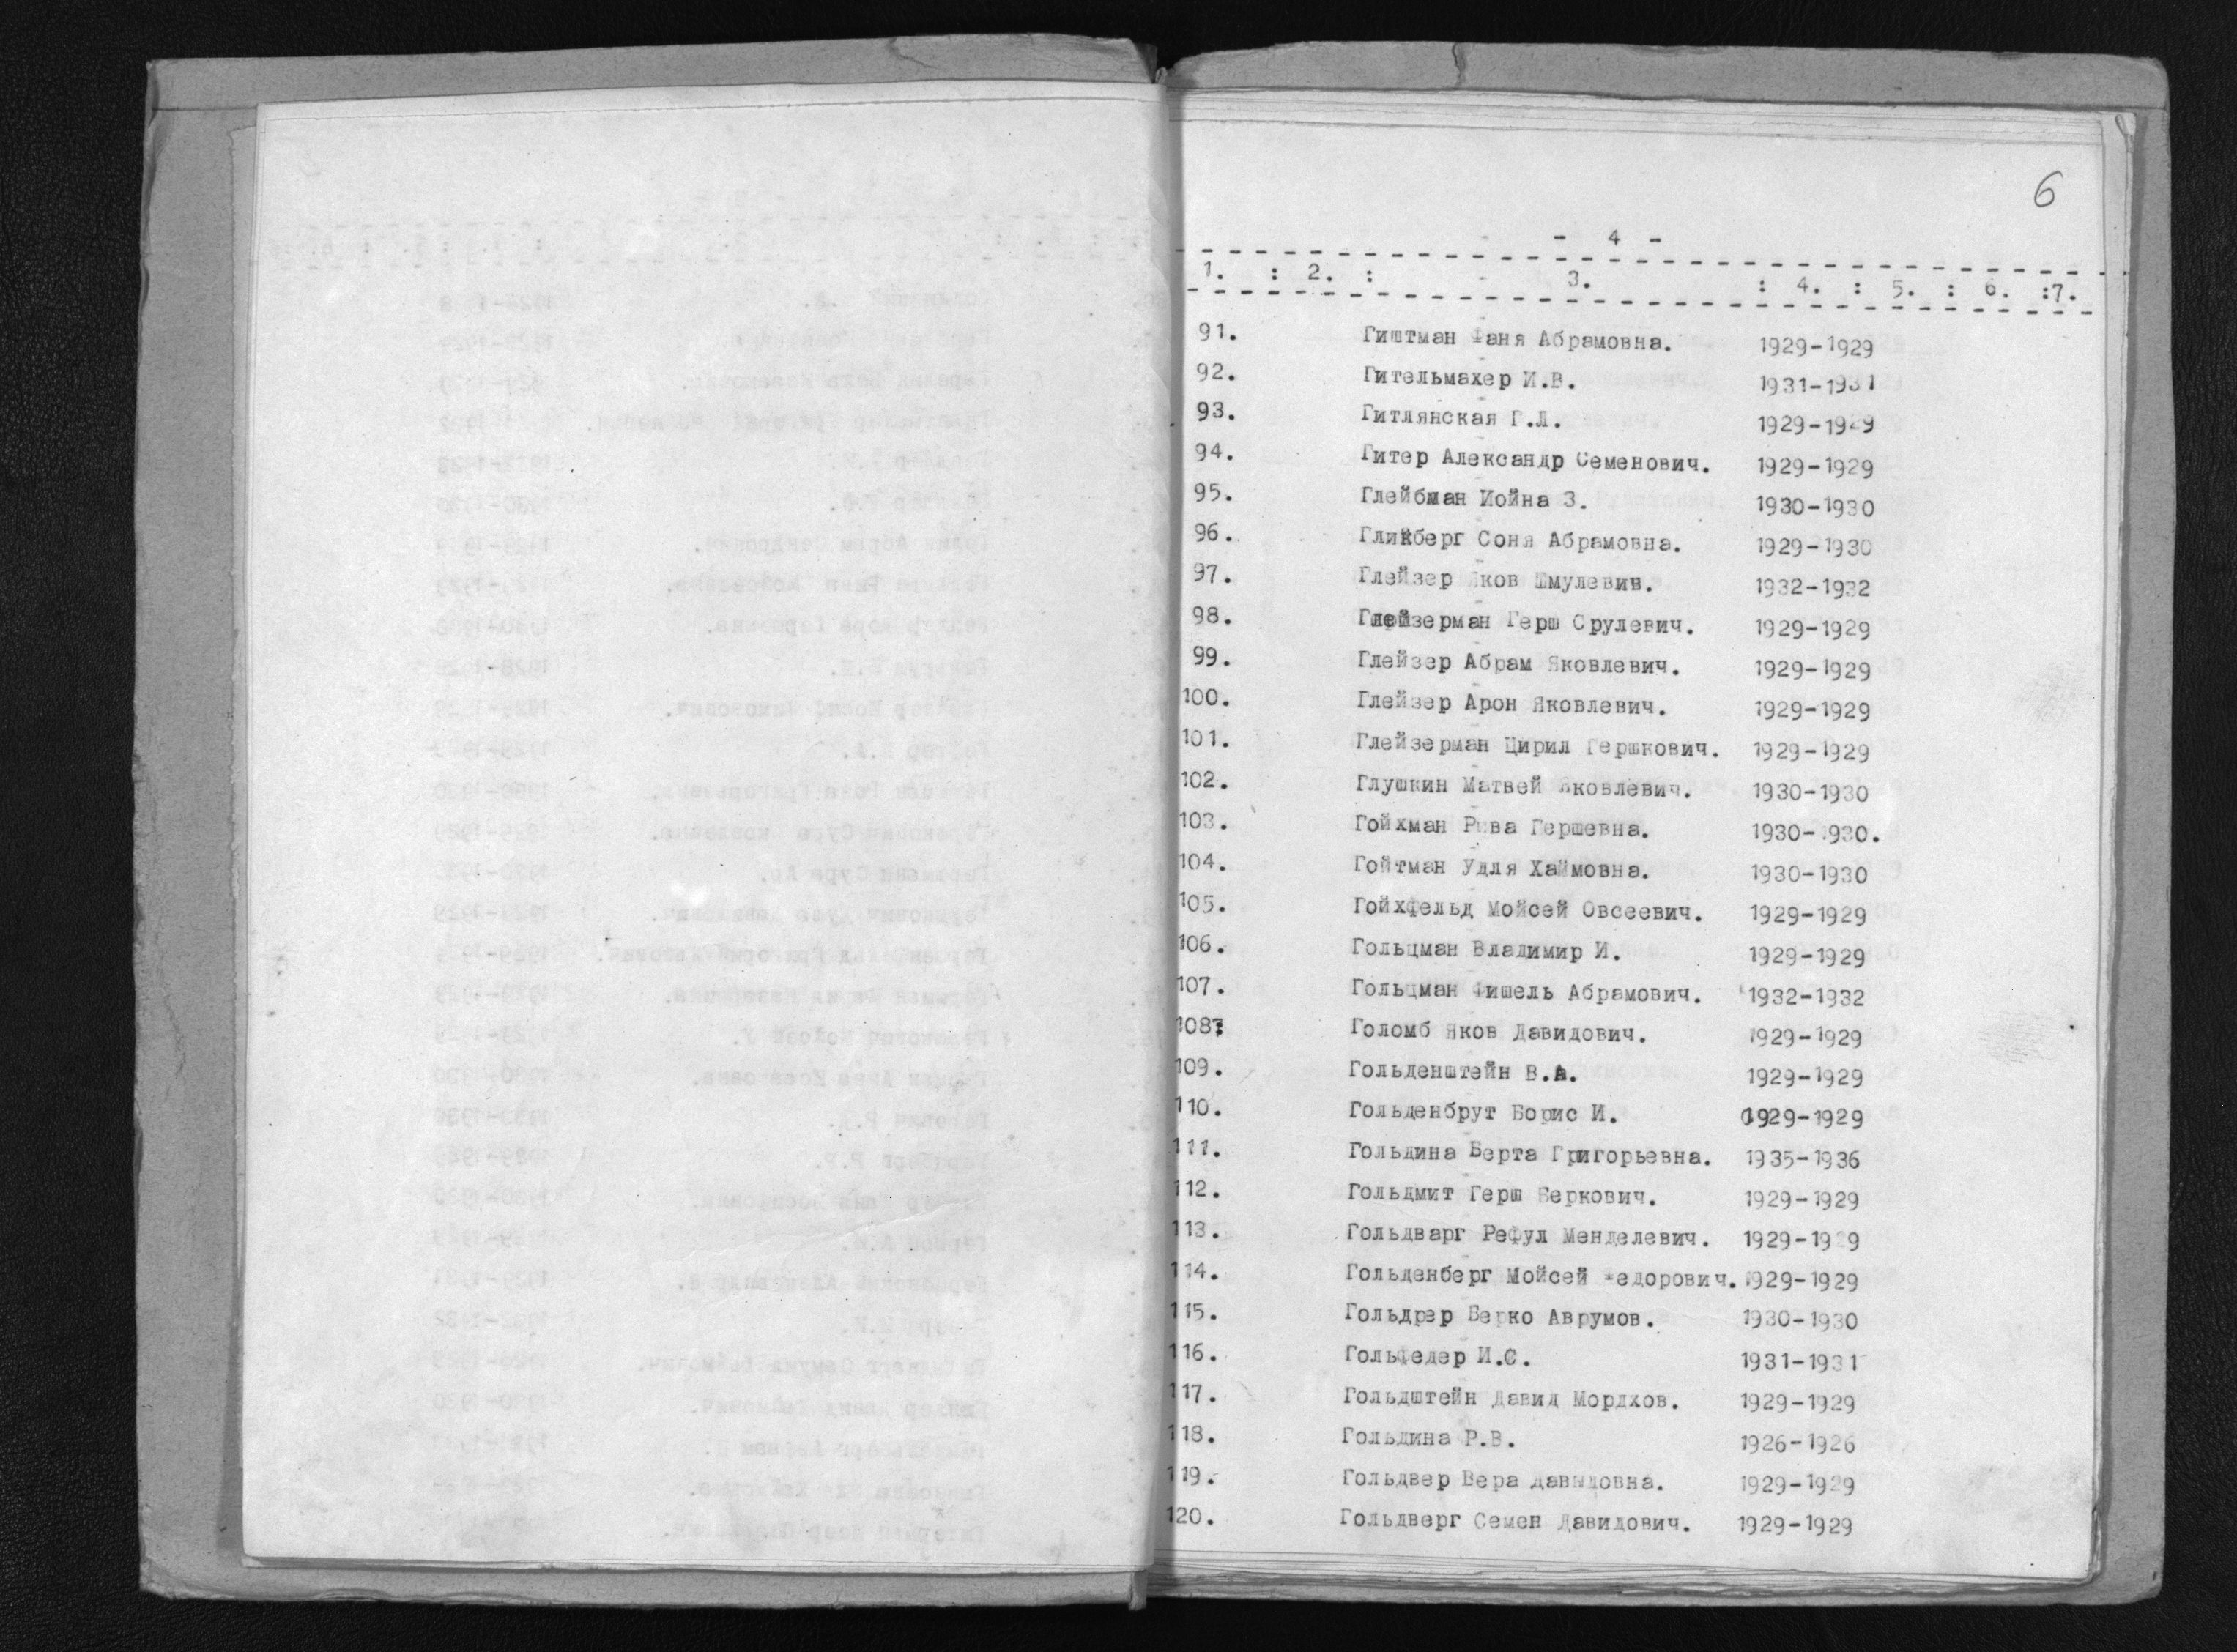 6
- 4 -
1. : 2. : 3. : 4. : 5. : 6. :7.
91. Гиштман Фаня Абрамовна. 1929-1929
92. Гительмахер И.В. 1931-1931
93. Гитлянская Г.Л. 1929-1929
94. Гитер Александр Семенович. 1929-1929
95. Глейбман Иойна З. 1930-1930
96. Гликберг Соня Абрамовна. 1929-1930
97. Глейзер Яков Шмулевив. 1932-1932
98. Глейзерман Герш Срулевич. 1929-1929
99. Глейзер Абрам Яковлевич. 1929-1929
100. Глейзер Арон Яковлевич. 1929-1929
101. Глейзерман Цирил Гершкович. 1929-1929
102. Глушкин Матвей Яковлевич. 1930-1930
103. Гойхман Рива Гершевна. 1930-1930.
104. Гойтман Удля Хаймовна. 1930-1930
105. Гойхфельд Мойсей Овсеевич. 1929-1929
106. Гольцман Владимир И. 1929-1929
107. Гольцман Фишель Абрамович. 1932-1932
108. Голомб Яков Давидович. 1929-1929
109. Гольденштейн В.А. 1929-1929
110. Гольденбрут Борис И. 1929-1929
111. Гольдина Берта Григорьевна. 1935-1936
112. Гольдмит Герш Беркович. 1929-1929
113. Гольдварг Рефул Менделевич. 1929-1929
114. Гольденберг Мойсей Федорович. 1929-1929
115. Гольдрер Берко Аврумов. 1930-1930
116. Гольфедер И.С. 1931-1931
117. Гольдштейн Давид Мордхов. 1929-1929
118. Гольдина Р.В. 1926-1926
119. Гольдвер Вера Давыдовна. 1929-1929
120. Гольдверг Семен Давидович. 1929-1929